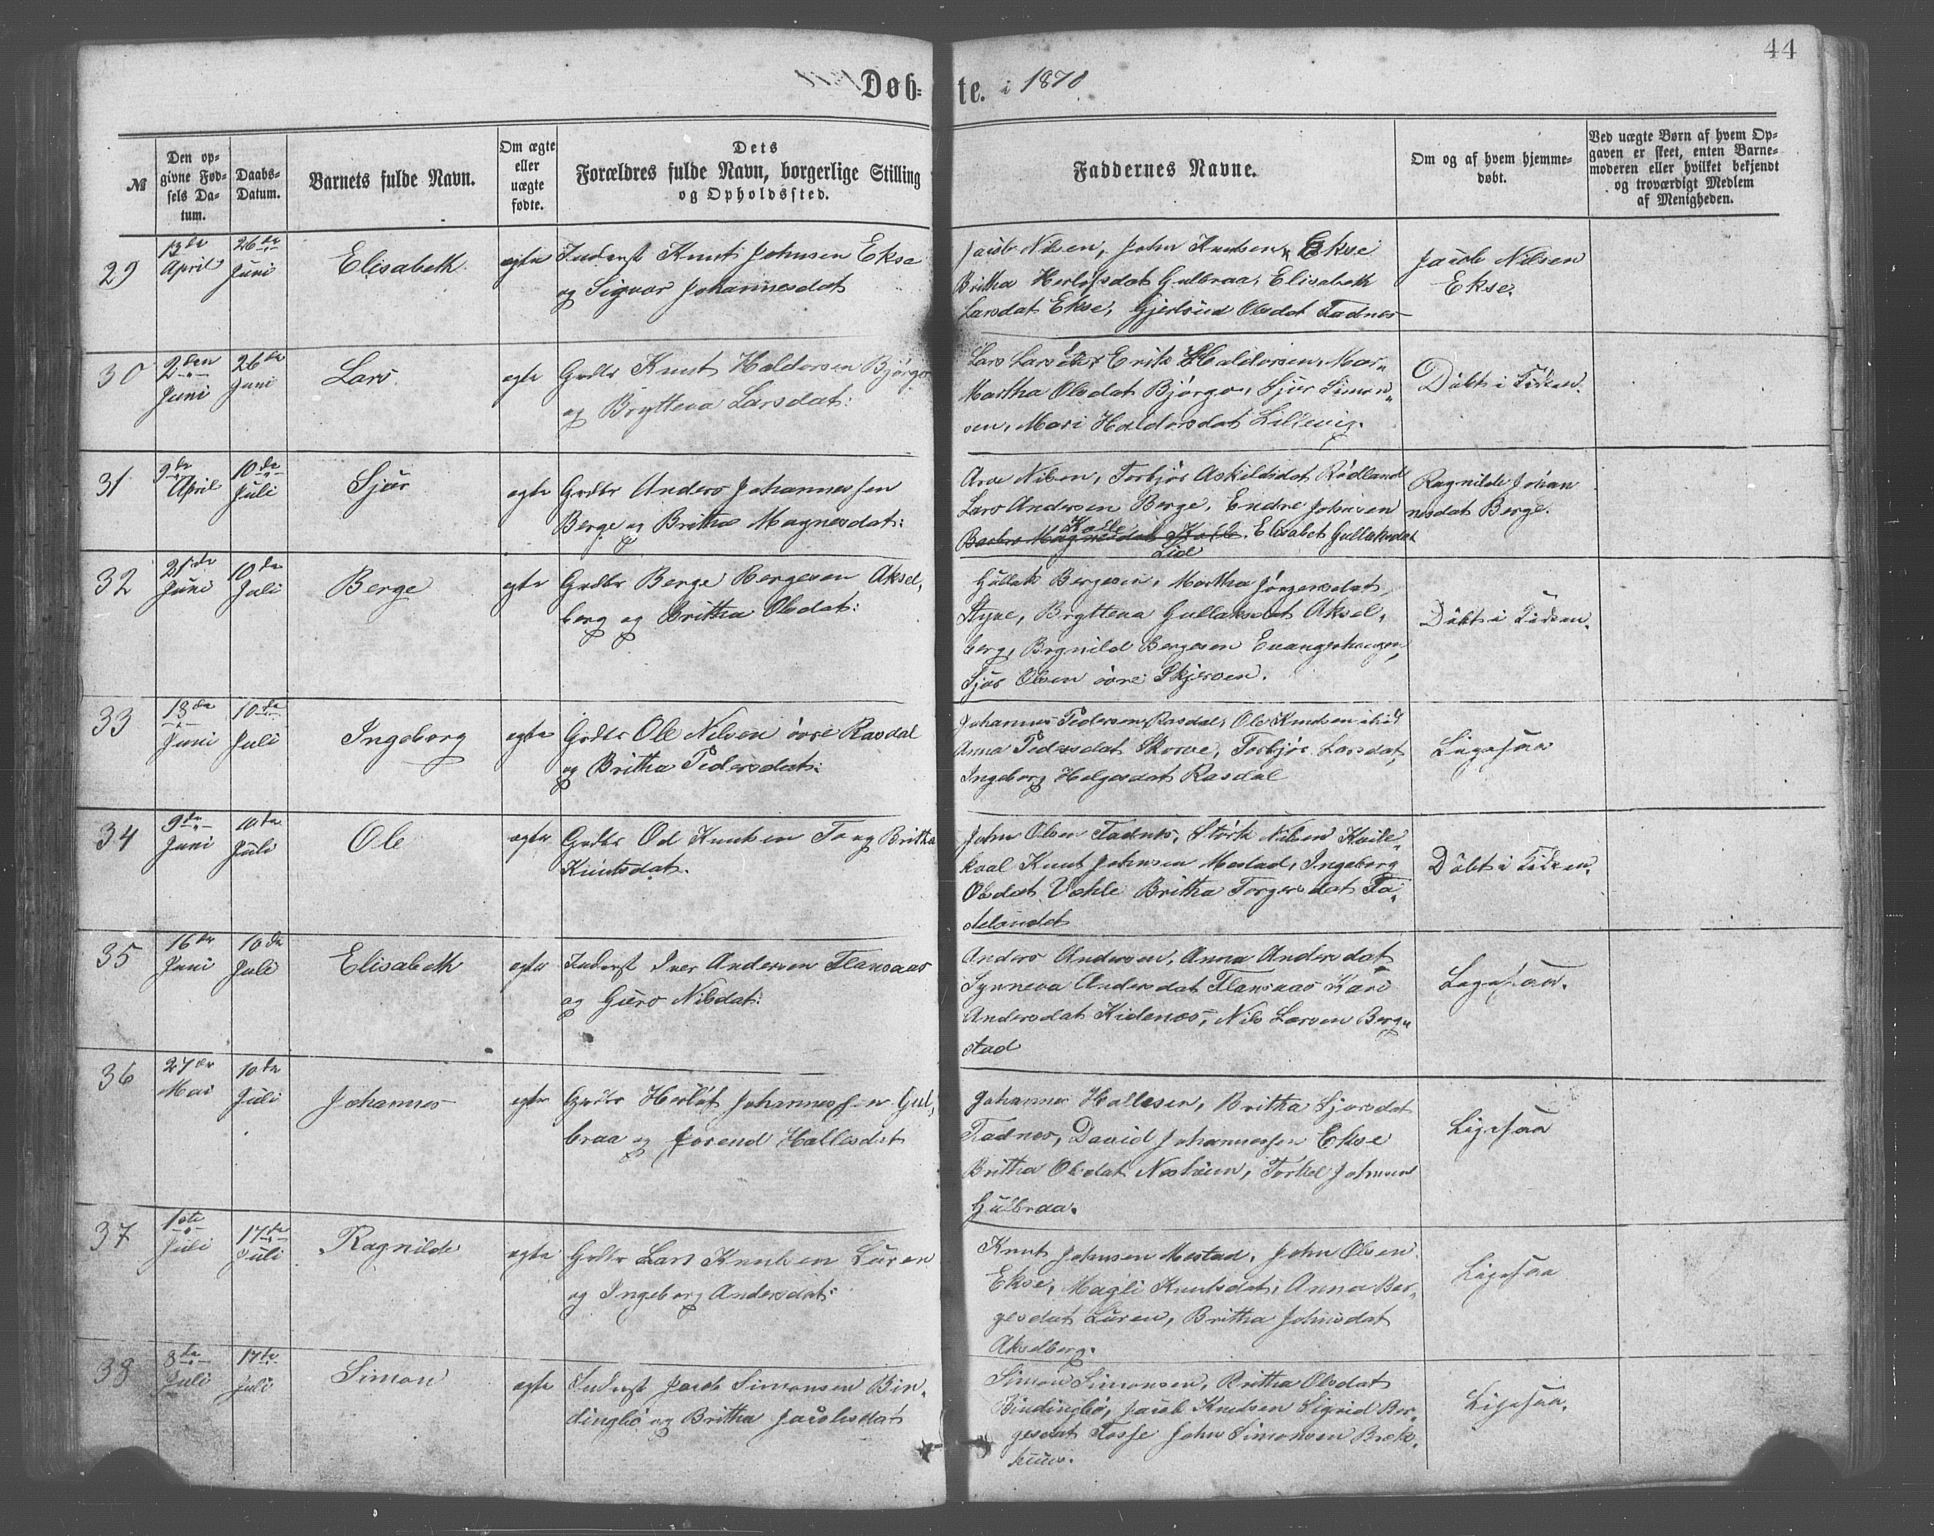 44
Døb=te. i 1870
№
Den op-
givne Fød-
sels Da-
tum.
Daabs-
Datum.
Barnets fulde Navn.
Om ægte
eller
uægte
fødte.
Dets
Forældres fulde Navn, borgerlige Stilling
og Opholdssted.
Faddernes Navne.
Om og af hvem hjemme-
døbt.
Ved uægte Børn af hvem Op-
gaven er skeet, enten Barne-
moderen eller hvilket bekjendt
og troværdigt Medlem
af Menigheden.
29
13de
April
26de
Juni
Elisabeth
egte
Inderst Knut Johnsen Ekse
og Sigvor Johannesdat
Jacob Nilsen, John Knutsen, Ekse
Britha Herlofsdat Gulbraa, Elisabeth
Larsdat Ekse, Gjertrud Olsdat Fadnes
Jacob Nilsen
Ekse.
30
2den
Juni
26de
Juni
Lars
egte
Grdbr Knut Haldorsen Bjørgo
og Brytteva Larsdat:
Lars Larsen Erik Haldorsen, Mar-
Martha Olsdat Bjørgo, Sjur Simon-
sen, Mari Haldorsdat Lillevig.
Döbt i Kirken.
31
9de
April
10de
Juli
Sjur
egte
Grdbr Anders Johannessen
Berge og Britha Magnesdat:
Arve Nilsen, Torbjør Askildsdat Rödland
Lars Andersen Berge, Endre Johnsen
Kolle
Barbro Magnesdat Kolle, Elisabet Gullaksdat
Lid
Ragnilde Johan
nesdat Berge.
32
21de
Juni
10de
Juli
Berge
egte
Grdbr Berge Bergesen Aksel-
berg og Britha Olsdat:
Gullak Bergesen, Martha Jörgensdat
Styve, Brytteva Gullaksdat Aksel-
berg, Brynild Bergesen Evangerhaugen,
Sjur Olsen övre Skjerven.
Döbt i Kirken.
33
13de
Juni
10de
Juli
Ingeborg
egte
Grdbr Ole Nilsen övre Rasdal
og Britha Pedersdat:
Johannes Pedersen Rasdal, Ole Knudsen ibid
Anna Pedersdat Skorve, Torbjör Larsdat,
Ingeborg Helgesdat Rasdal
Ligesaa
34
9de
Juni
10de
Juli
Ole
egte
Grdbr Od Knutsen Fo og Britha
Knutsdat.
John Olsen Fadnes, Störk Nilsen Kvile-
kval Knut Johnsen Mestad, Ingeborg
Olsdat Væhle Britha Torgersdat Fa-
delandet
Döbt i Kirken.
35
16de
Juni
10de
Juli
Elisabeth
egte
Inderst Iver Andersen Flansaas
og Guro Nilsdat:
Anders Andersen, Anna Andersdat
Synneva Andersdat Flansaas Kari
Andersdat Kidenes, Nils Larsen Berg-
stad
Ligesaa.
36
27de
Mai
10de
Juli
Johannes
egte
Grdbr Herlof Johannessen Gul-
braa og Jorend Hallesdat
Johannes Hallesen, Britha Sjursdat
Fadnes, David Johannessen Ekse
Britha Olsdat Nesheim, Torkel Johnsen
Gulbraa.
Ligesaa
37
1ste
Juli
17de
Juli
Ragnilde
egte
Grdbr Lars Knutsen Luren
og Ingeborg Andersdat:
Knut Johnsen Mestad, John Olsen
Ekse, Magli Knutsdat, Anna Ber-
gesdat Luren, Britha Johnsdat
Akselberg.
Ligesaa
38
8de
Juli
17de
Juli
Simon
egte
Inderst Jacob Simonsen Bin-
dingbö og Britha Jacobsdat
Simon Simonsen, Britha Olsdat
Bindingbö, Jacob Knutsen Sigrid Ber-
gesdat Fosse John Simonsen Bræk-
huus.
Ligesaa.